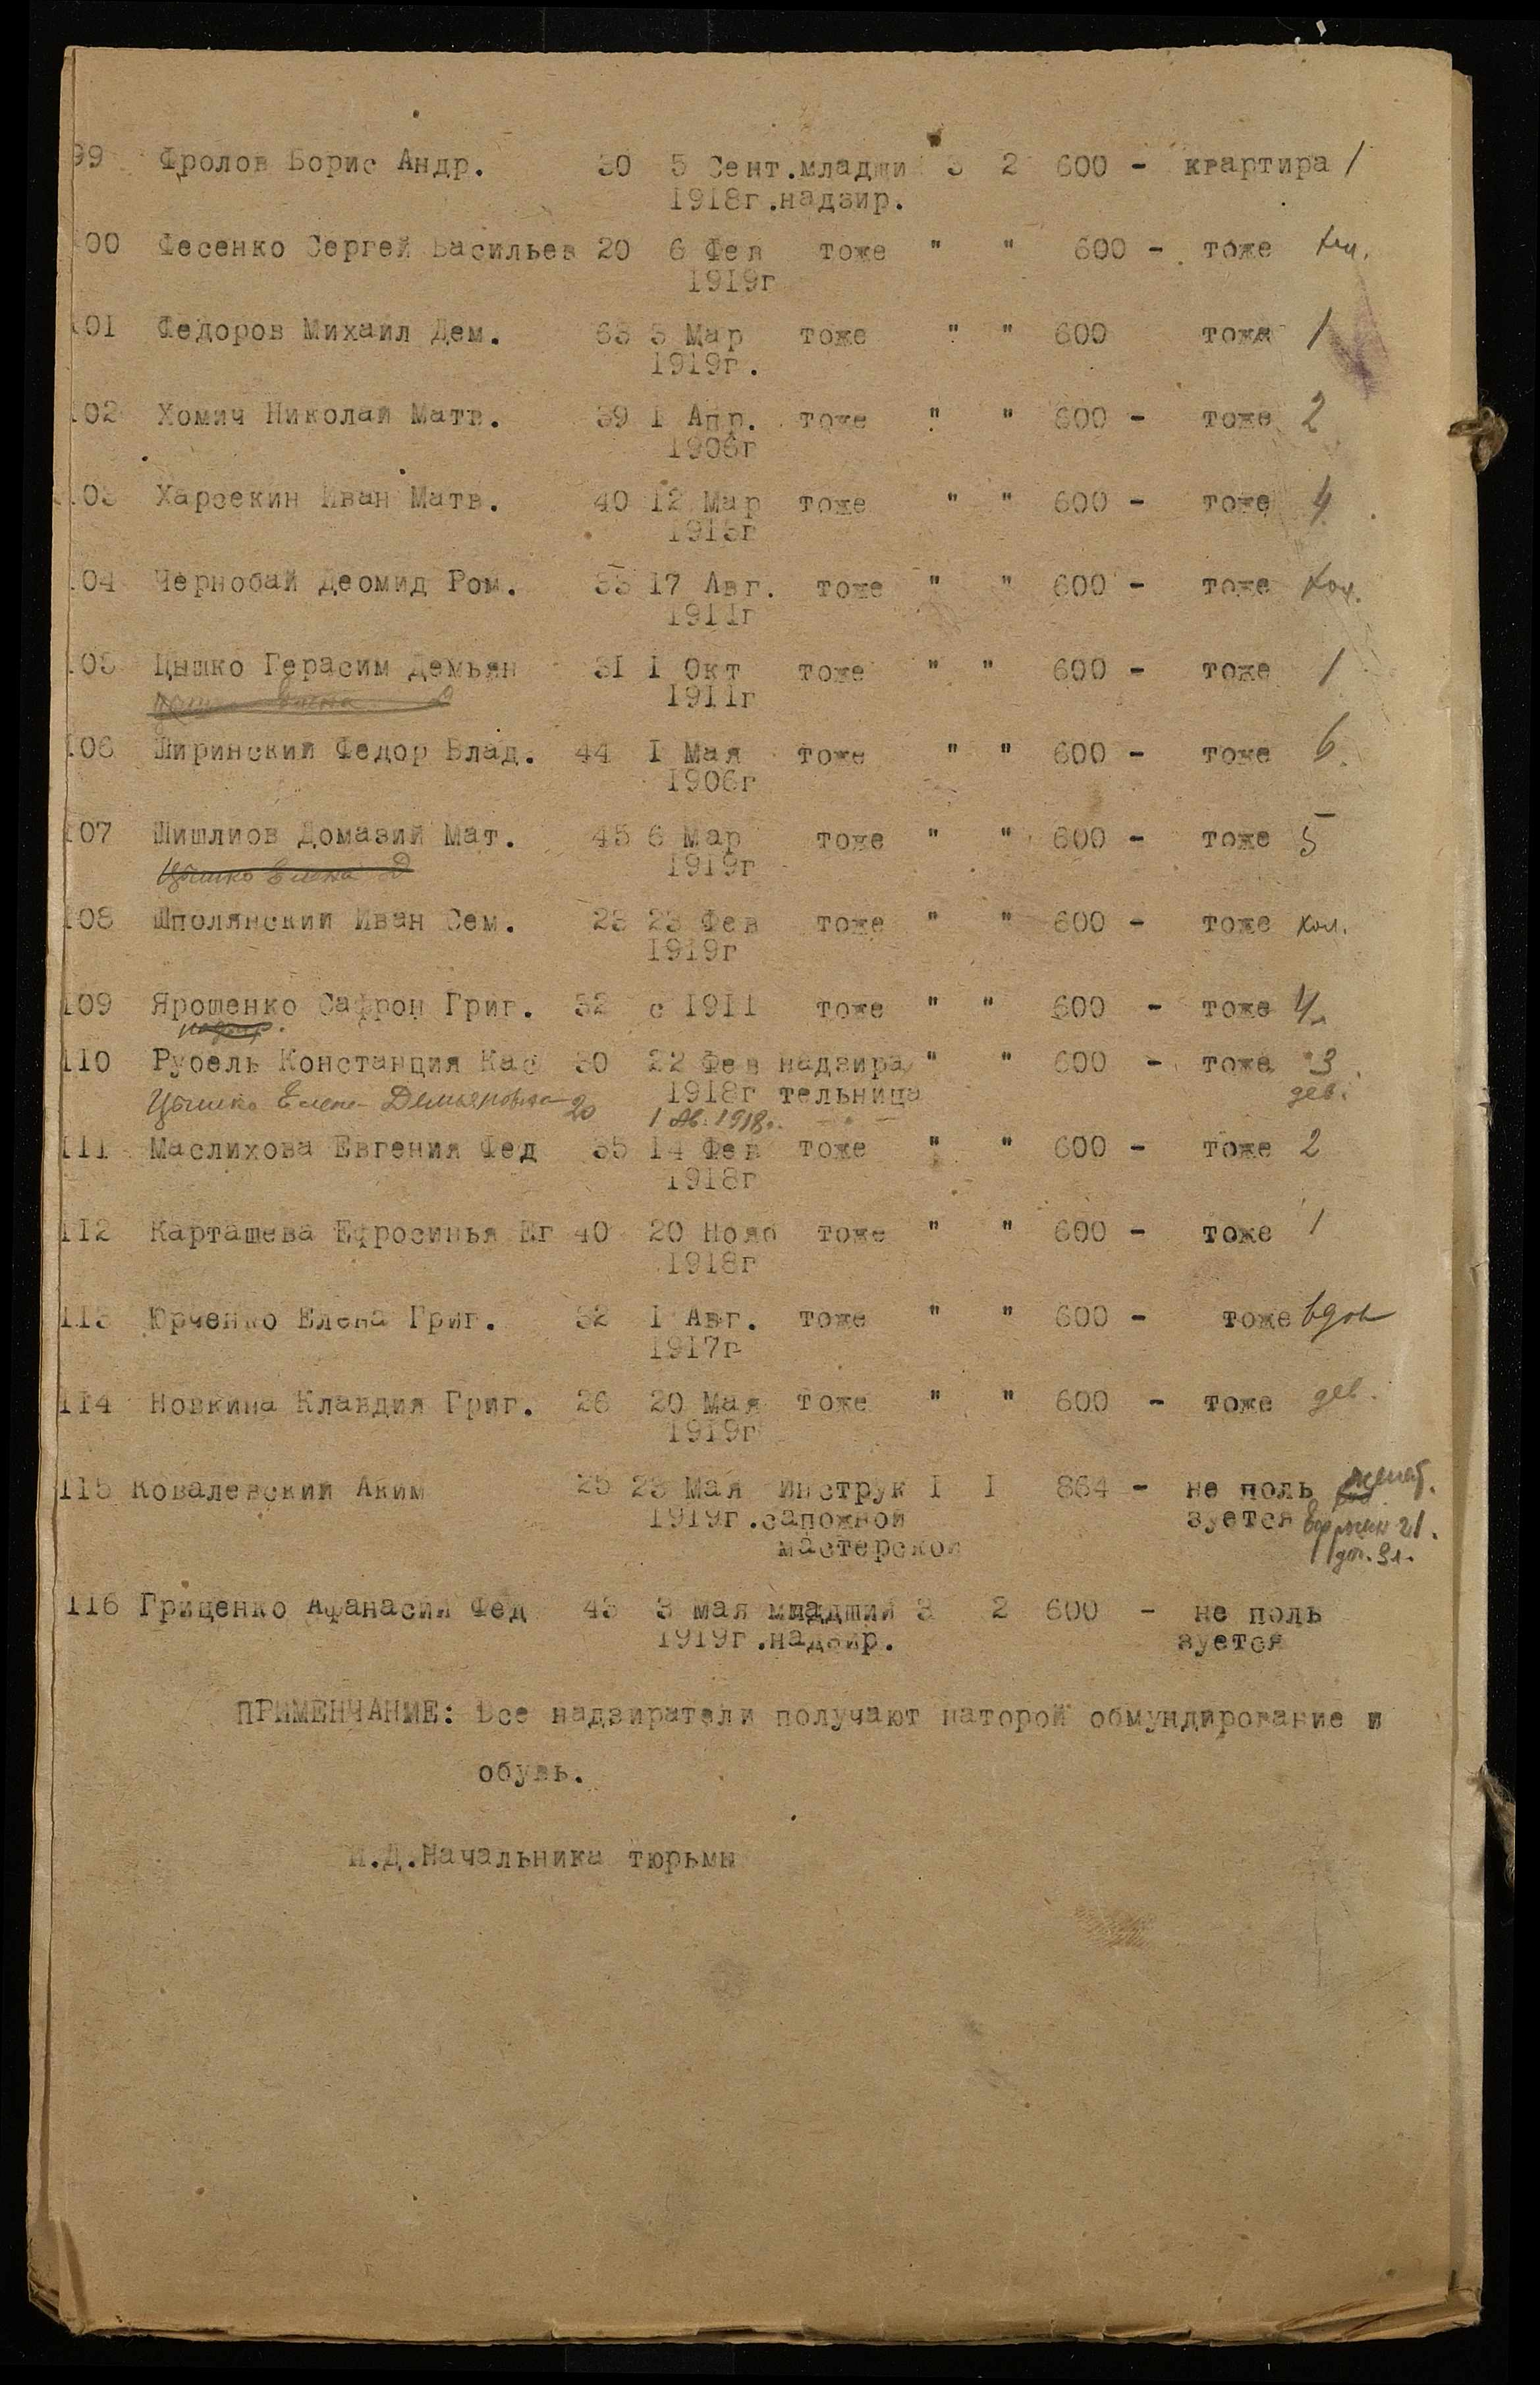 99 Фролов Борис Андр. 30 5 Сент.младши 3 2 600 - квартира 1
1918г.надзир.
00 Фесенко Сергей Васильев 20 6 Фев тоже " " 600 - тоже
1919г
101 Федоров Михаил Дем. 63 5 Мар тоже " " 600 тоже 1
1919г.
102 Хомич Николай Матв. 39 I Апр. тоже " " 600 - тоже 2
1906г
103 Харсекин Иван Матв. 40 12 Мар тоже " " 600 - тоже 4
1913г
104 Чернобай Деомид Ром. 33 17 Авг. тоже " " 600 - тоже хол.
1911г
105 Цышко Герасим Демьян 31 I Окт тоже " " 600 - тоже 1
1911г
106 Ширинский Федор Влад. 44 I Мая тоже " " 600 - тоже 6
1906г
107 Шишлиов Домазий Мат. 45 6 Мар тоже " " 600 - тоже 5
Цышко Елена Д 1919г
108 Шполянский Иван Сем. 23 23 Фев тоже " " 600 - тоже хол.
1919г
109 Ярошенко Сафрон Григ. 32 с 1911 тоже " " 600 - тоже 4
110 Рубель Констанция Кас 30 22 Фев надзира " " 600 - тоже 3
1918г тельница дев.
Цышко Елена Демьяновна 20 1 Ав. 1918г.
111 Маслихова Евгения Фед 35 14 Фев тоже " " 600 - тоже 2
1918г
112 Карташева Ефросинья Ег 40 20 Нояб тоже " " 600 - тоже 1
1918г
113 Юрченко Елена Григ. 32 I Авг. тоже " " 600 - тоже вдов
1917г
114 Новкина Клавдия Григ. 26 20 Мая тоже " " 600 - тоже дев.
1919г
115 Ковалевский Аким 25 23 Мая инструк I I 864 - не поль женат.
1919г.сапожной зуется
мастерской
116 Гриценко Афанасий Фед 43 3 мая младший 3 2 600 - не поль
1919г.надзир. зуется
ПРИМЕНЧАНИЕ: Все надзиратели получают наторой обмундирование и
обувь.
И.Д.Начальника тюрьмы